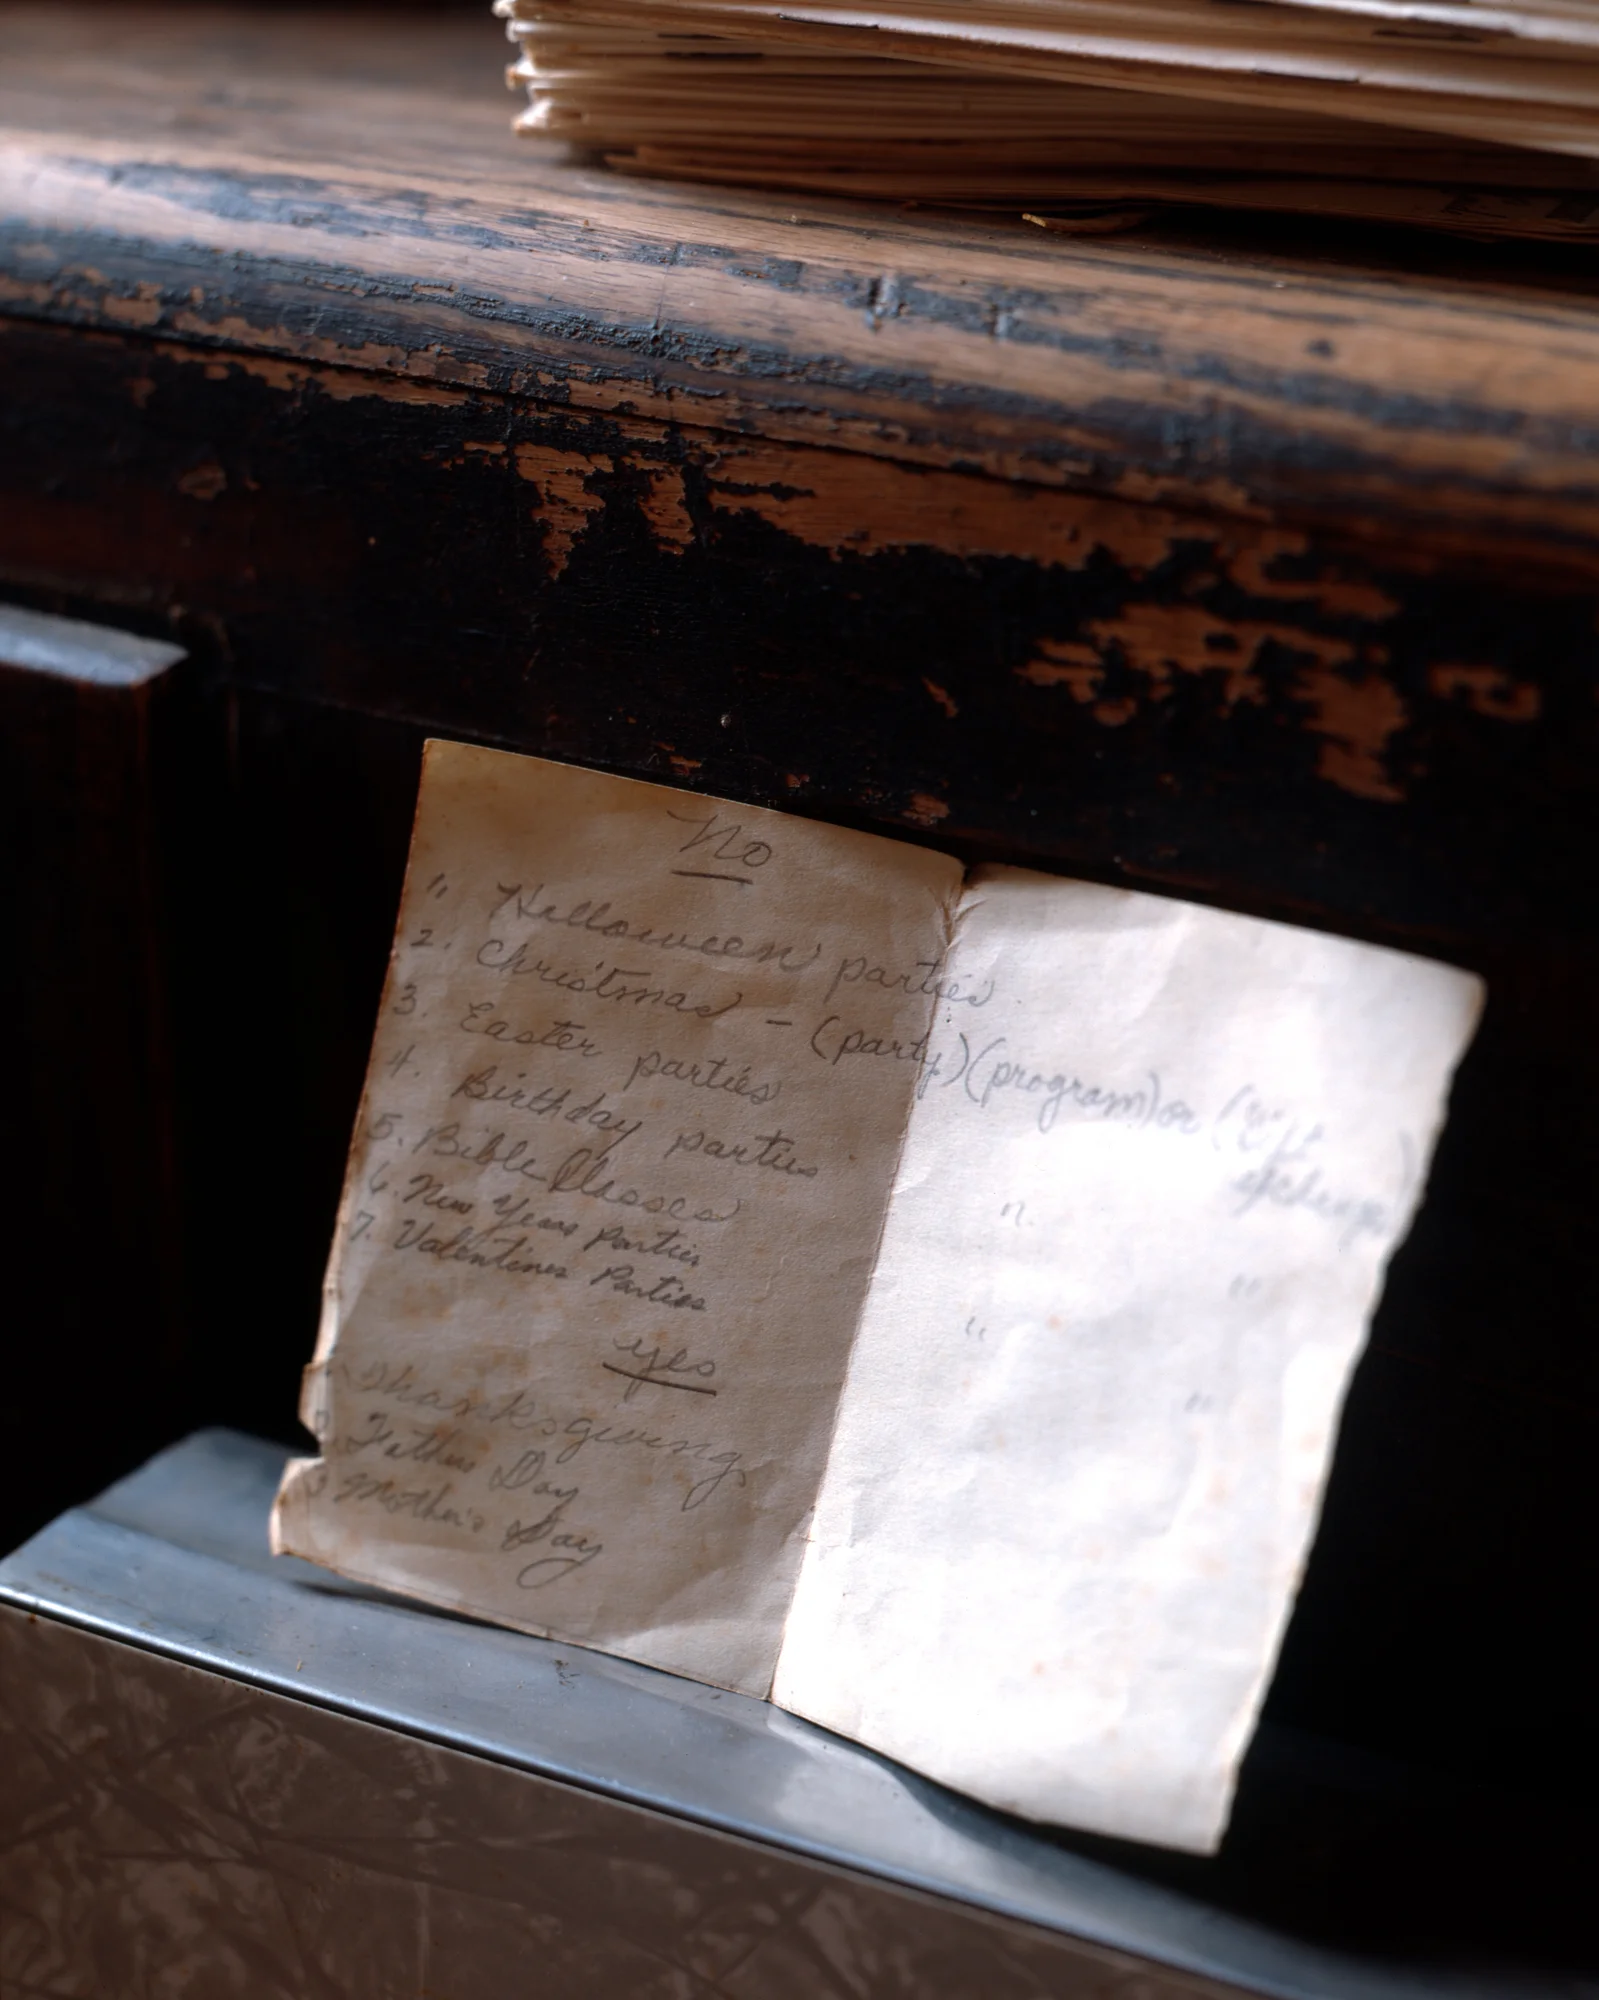 No
1. Halloween parties
2. Christmas - (party) (program) or (Gift
exchange)
3. Easter parties "
4. Birthday parties " "
5. Bible Classes "
6. New Years Parties
7. Valentines Parties
yes
Thanksgiving
2 Fathers Day
3 Mother's Day